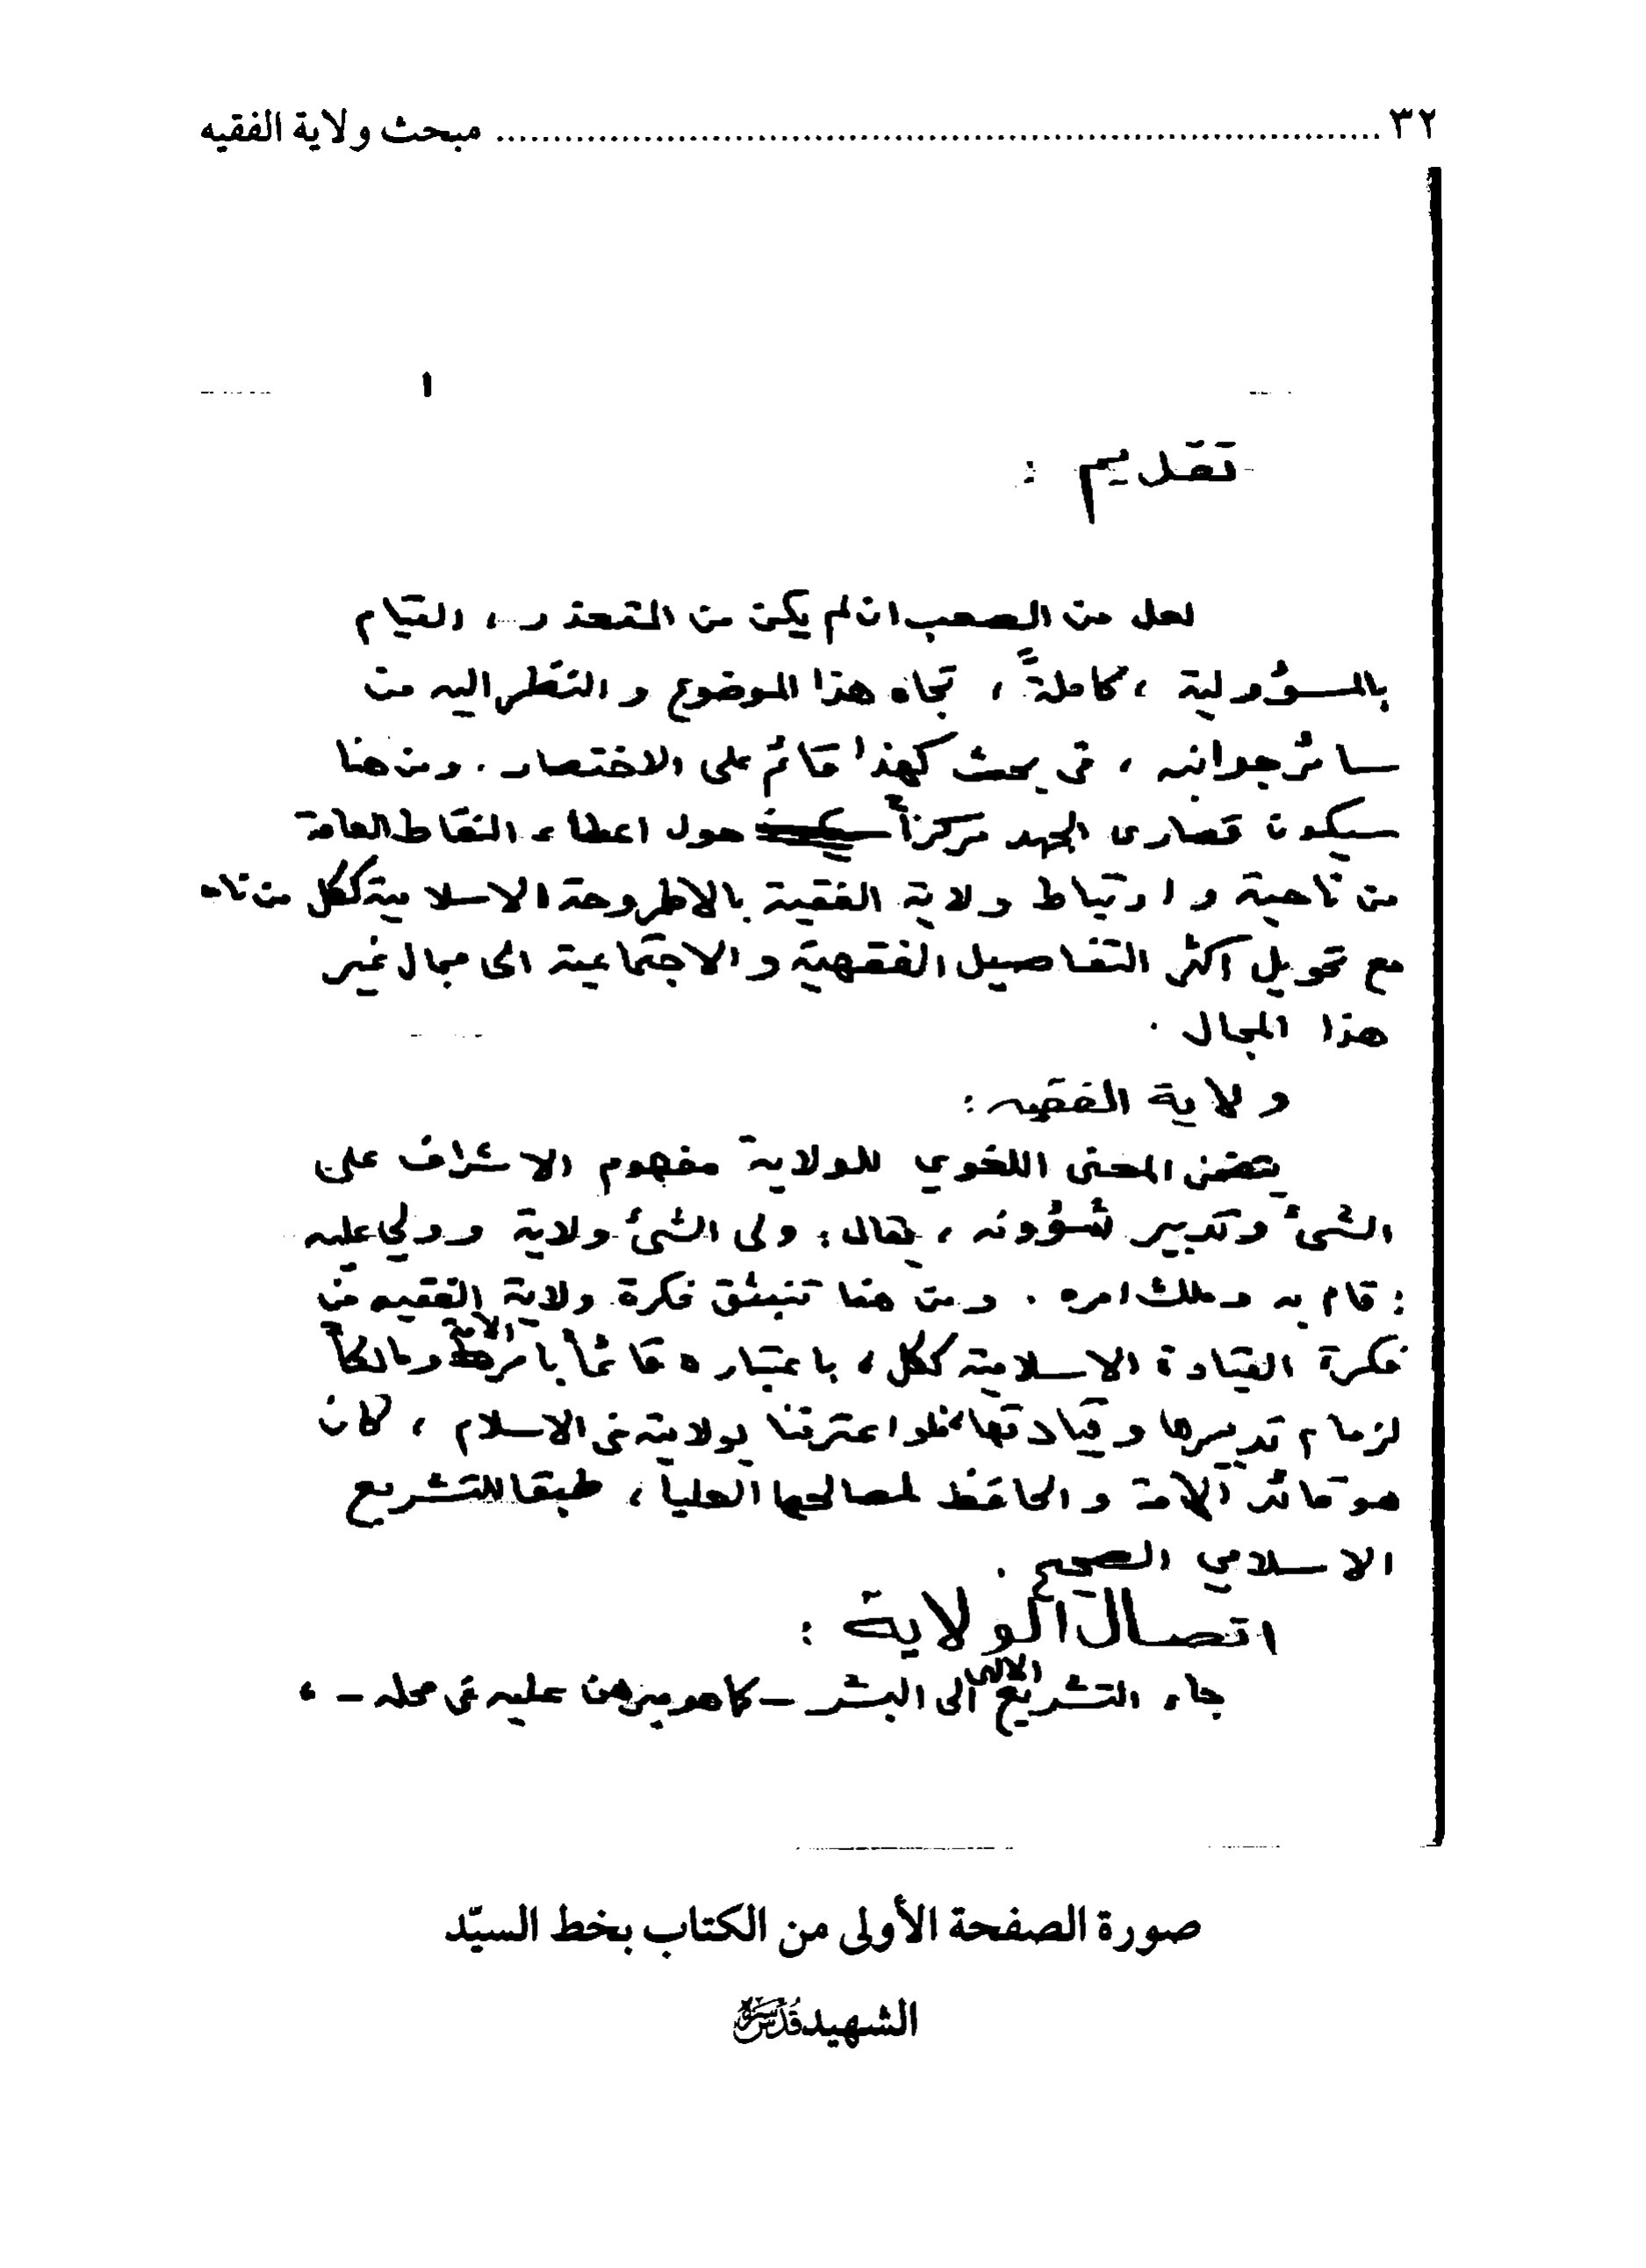 ٣٢ ........ مبحث ولاية الفقيه
١
تقديم :
لعل من الصعب ان لم يكن من المتعذر ، القيام
بالمسؤولية ، كاملةً ، تجاه هذا الموضوع والنظر اليه من
سائر جوانبه ، في بحث كهذا قائم على الاختصار . ومن هنا
سيكون قصارى الجهد مركزاً حول اعطاء النقاط العامة
من ناحية وارتباط ولاية الفقيه بالاطروحة الاسلامية ككل من
مع تحويل اكثر التفاصيل الفقهية والاجتماعية الى مجال غير
هذا المجال .
ولاية الفقيه :
يتضمن المعنى اللغوي للولاية مفهوم الاشراف على
الشئ وتدبير شؤونه ، يقال : ولى الشئ ولاية وولي عليه
: قام به وملك امره . ومن هنا تنبثق فكرة ولاية الفقيه من
فكرة القيادة الاسلامية ككل ، باعتباره قائماً بامر الامة ومالكاً
لزمام تدبيرها وقيادتها فلو اعترفنا بولايته في الاسلام ، كان
هو قائد الامة والحافظ لمصالحها العليا ، طبقا للتشريع
الاسلامي الصحيح .
اتصال الولاية :
جاء التشريع الالهي الى البشر – كما هو مبرهن عليه في محله – ،
صورة الصفحة الأولى من الكتاب بخط السيّد
الشهيد قدس سره